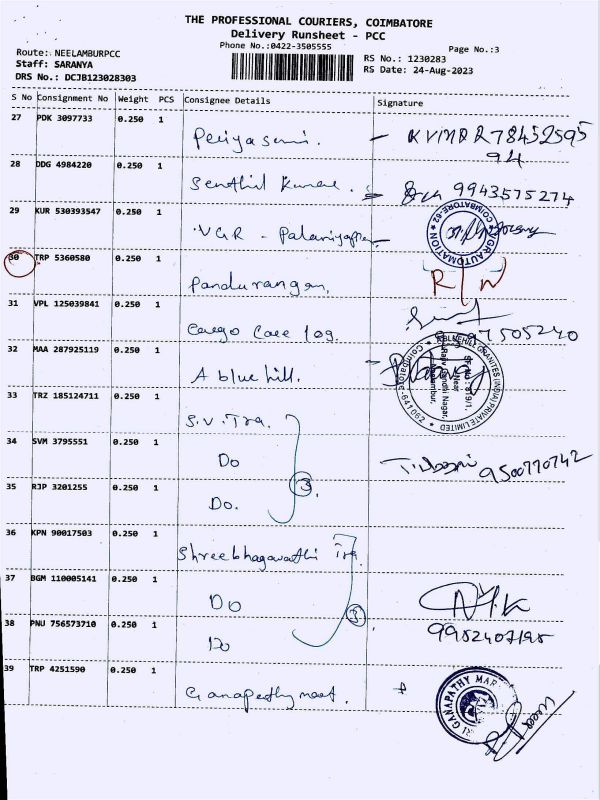 THE PROFESSIONAL COURIERS, COIMBATORE
Delivery Runsheet - PCC
Phone No.:0422-3505555
Page No.:3
Route: NEELAMBURPCC
Staff: SARANYA
DRS No.: DCJB123028303
RS No.: 1230283
RS Date: 24-Aug-2023
S No Consignment No Weight PCS Consignee Details Signature
27 PDK 3097733 0.250 1
Periyasami. -
94
28 DDG 4984220 0.250 1
Senthil Kumar. 9943575274
29 KUR 530393547 0.250 1
VGR - COIMBATORE-62
30 TRP 5360580 0.250 1
Pandurangan. R/N
31 VPL 125039841 0.250 1
Cargo Care log.
32 MAA 287925119 0.250 1
A blue hill.
BLUEHILL GRANITES (INDIA) PRIVATE LIMITED
Coimbatore-641062
33 TRZ 185124711 0.250 1
S.V. Tra.
34 SVM 3795551 0.250 1
Do 9500770742
35 RJP 3201255 0.250 1
Do. 3
36 KPN 90017503 0.250 1
Shreebhagawathi Tra.
37 BGM 110005141 0.250 1
Do
38 PNU 756573710 0.250 1
Do 3
39 TRP 4251590 0.250 1
Ganapathy mart.
GANAPATHY MAR